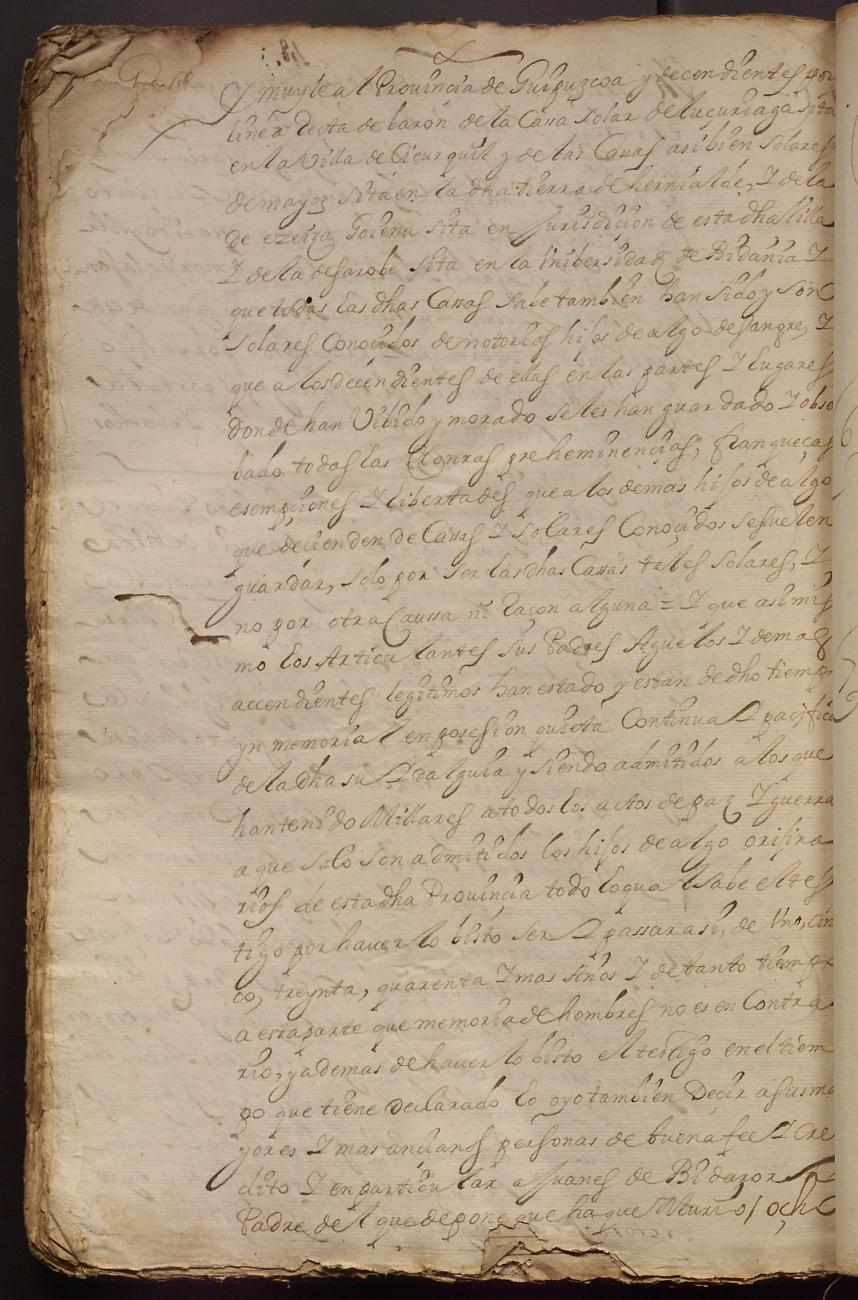 y muy leal Provincia de Guipuzcoa y decendientes por
linea Recta de baron de la Cassa solar de lucuriaga sita
en la Villa de Cicurquil y de las Cassas asi bien solares
de mayoz sita en la dha tierra de hernialde, I de la
de ezeiza Goiena sita en jurisdicion de esta dha Villa
I de la de sarobe sita en la Vnibersidad de Bidania I
que todas las dhas Cassas sabe tambien han sido y son
solares Conocidos de notorios hijos de algo de sangre, I
que a los decendientes de ellas en las partes I lugares
donde han Vibido y morado se les han guardado I obse
bado todas las Honras preheminencias, franqueças
esempciones I libertades que a los demas hijos de algo
que decienden de Cassas I solares Conocidos se suelen
guardar, solo por ser las dhas Cassas tales solares, I
no por otra Caussa ni Raçon alguna = I que asi mis
mo los Articulantes sus Padres Aguelos I demas
accendientes legitimos han estado y estan de dho tiempo
yn memorial en posesion quieta Continua I pacifica
de la dha su Idalguia y siendo admitidos a los que
han tenido Millares a todos los actos de paz I guerra
a que solo son admitidos los hijos de algo orijina
rios de esta dha Provincia todo lo qual sabe el tes
tigo por hauerlo bisto ser I passar asi, de Vno, cin
co, treynta, quarenta I mas Años I de tanto tiempo
a esta parte que memoria de hombres no es en Contra
rio, y ademas de hauerlo bisto el testigo en el tiem
po que tiene declarado lo oyo tambien Decir a sus ma
yores I mas ancianos personas de buena fee I Cre
dito I en particular a Juanes de Bidazor
Padre del que depone que ha que Murio ocho